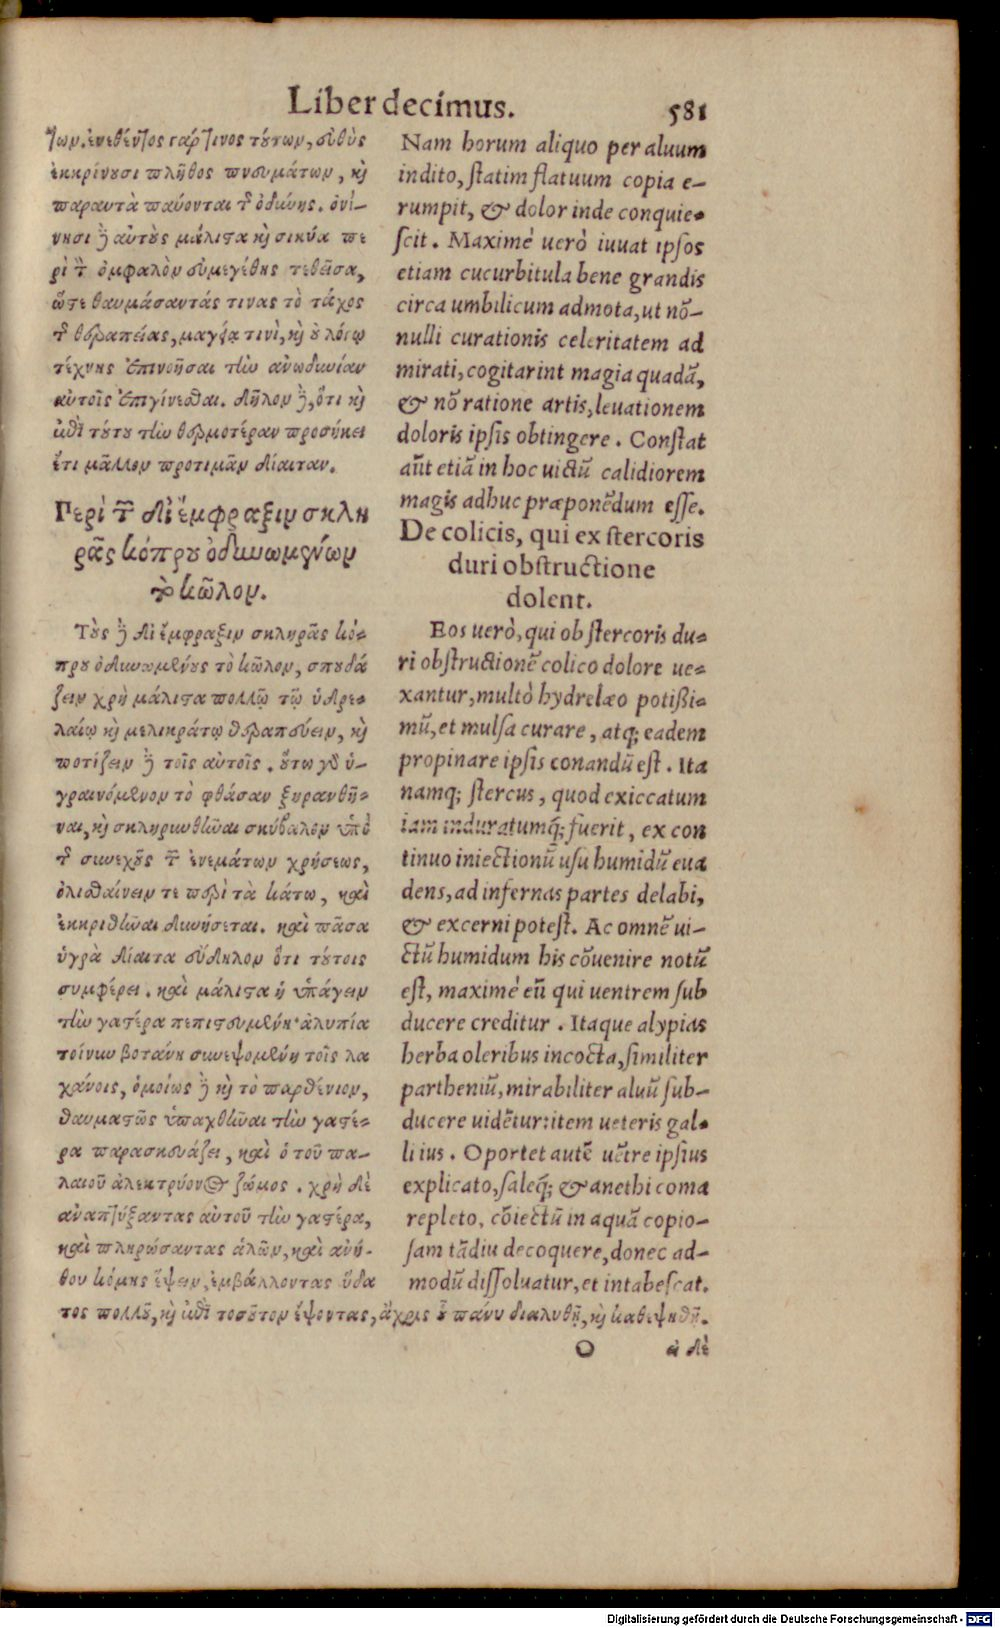 Liber decimus. 581
των. ἐνεθέντος γάρ τινος τούτων, εὐθὺς
ἐκκρίνουσι πλῆθος πνευμάτων, καὶ
παραυτὰ παύονται τῆς ὀδύνης. ὀνί-
νησι δὲ αὐτοὺς μάλιστα καὶ σικύα πε
ρὶ τὸν ὀμφαλὸν εὐμεγέθης τεθεῖσα,
ὥστε θαυμάσαντάς τινας τὸ τάχος
τῆς θεραπείας, μαγείᾳ τινὶ, καὶ οὐ λόγῳ
τέχνης ἐπινοῆσαι τὴν ἀνωδυνίαν
αὐτοῖς ἐπιγίνεσθαι. δῆλον δὲ, ὅτι καὶ
ἐπὶ τούτου τὴν θερμοτέραν προσήκει
ἔτι μᾶλλον προτιμᾶν δίαιταν.
Περὶ τῶν δι' ἔμφραξιν σκλη
ρᾶς κόπρου ὀδυνωμένων
τὸ κῶλον.
Τοὺς δὲ δι' ἔμφραξιν σκληρᾶς κό-
πρου ὀδυνωμένους τὸ κῶλον, σπουδά
ζειν χρὴ μάλιστα πολλῷ τῷ ὑδρε-
λαίῳ καὶ μελικράτῳ θεραπεύειν, καὶ
ποτίζειν δὲ τοῖς αὐτοῖς. οὕτω γὰρ ὑ-
γραινόμενον τὸ φθάσαν ξηρανθῆ-
ναι, καὶ σκληρυνθῆναι σκύβαλον ὑπὸ
τῆς συνεχοῦς τῶν ἐνεμάτων χρήσεως,
ὀλισθαίνειν τε περὶ τὰ κάτω, καὶ
ἐκκριθῆναι δυνήσεται. καὶ πᾶσα
ὑγρὰ δίαιτα εὔδηλον ὅτι τούτοις
συμφέρει. καὶ μάλιστα ἡ ὑπάγειν
τὴν γαστέρα πεπιστευμένη· ἀλυπία
τοίνυν βοτάνη συνεψομένη τοῖς λα
χάνοις, ὁμοίως δὲ καὶ τὸ παρθένιον,
θαυμαστῶς ὑπαχθῆναι τὴν γαστέ-
ρα παρασκευάζει, καὶ ὁ τοῦ πα-
λαιοῦ ἀλεκτρύονος ζωμος. χρὴ δὲ
ἀναπτύξαντας αὐτοῦ τὴν γαστέρα,
καὶ πληρώσαντας ἁλῶν, καὶ ἀνή-
θου κόμης ἕψειν, ἐμβάλλοντας ὕδα
τος πολλοῦ, καὶ ἐπὶ τοσοῦτον ἕψοντας, ἄχρις οὗ πάνυ διαλυθῇ, καὶ καθεψηθῇ.
Nam horum aliquo per aluum
indito, ſtatim flatuum copia e-
rumpit, & dolor inde conquie-
ſcit. Maximé uerò iuuat ipſos
etiam cucurbitula bene grandis
circa umbilicum admota, ut nō-
nulli curationis celeritatem ad
mirati, cogitarint magia quadã,
& nō ratione artis, leuationem
doloris ipſis obtingere. Conſtat
aũt etiã in hoc uictũ calidiorem
magis adhuc præponẽdum eſſe.
De colicis, qui ex ſtercoris
duri obſtructione
dolent.
Eos uerò, qui ob ſtercoris du-
ri obſtructionẽ colico dolore ue-
xantur, multò hydrelæo potißi-
mũ, et mulſa curare, atq; eadem
propinare ipſis conandũ eſt. Ita
namq; ſtercus, quod exiccatum
iam induratumq́; fuerit, ex con
tinuo iniectionũ uſu humidũ eua
dens, ad infernas partes delabi,
& excerni poteſt. Ac omnẽ ui-
ctũ humidum his cōuenire notũ
eſt, maximé eũ qui uentrem ſub
ducere creditur. Itaque alypias
herba oleribus incocta, ſimiliter
partheniũ, mirabiliter aluũ ſub-
ducere uidẽtur: item ueteris gal-
li ius. Oportet autẽ uẽtre ipſius
explicato, ſaleq́; & anethi coma
repleto, cōiectũ in aquã copio-
ſam tãdiu decoquere, donec ad-
modũ diſſoluatur, et intabeſcat.
O α δὲ
Digitalisierung gefördert durch die Deutsche Forschungsgemeinschaft - DFG